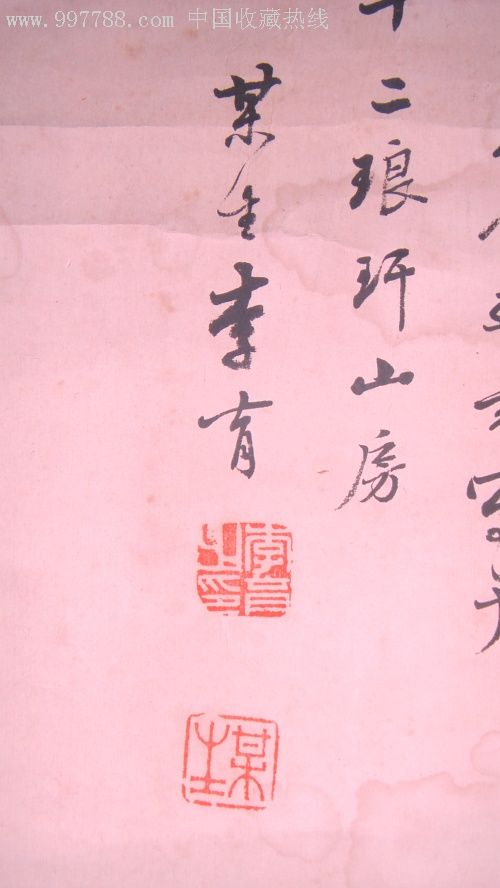 www.997788.com 中国收藏热线
十二琅玕山房
某生李育
李育之印
某生